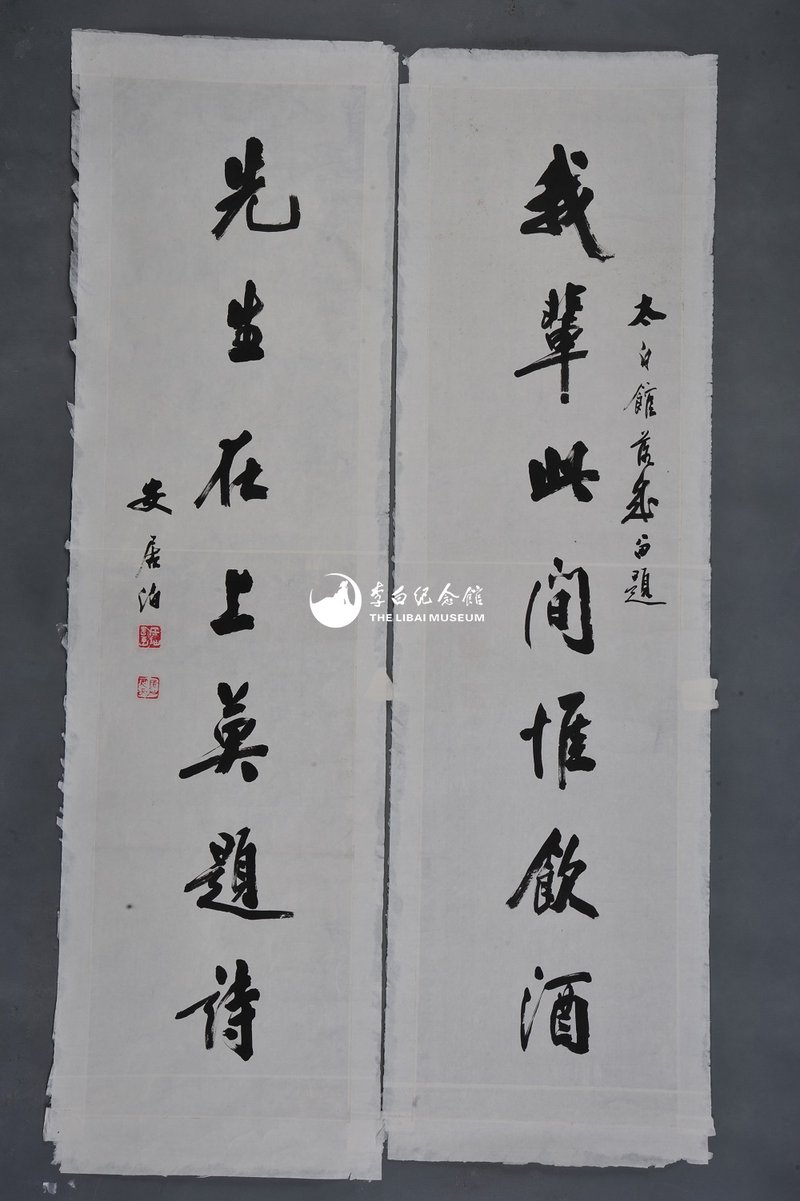 太白館落成留題
我輩此间惟飲酒
先生在上莫題詩
安居泊
李白纪念館
THE LIBAI MUSEUM